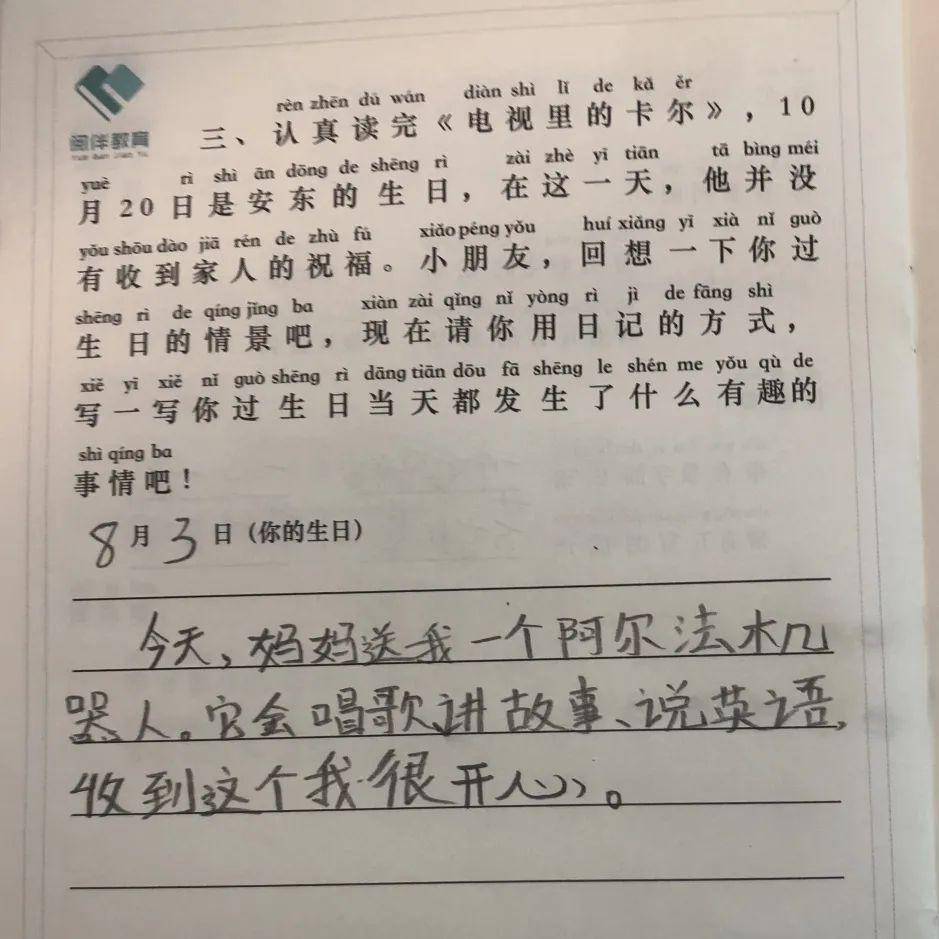 阅伴教育
rèn zhēn dú wán diàn shì lǐ de kǎ ěr
三、认真读完《电视里的卡尔》，10
yuè rì shì ān dōng de shēng rì zài zhè yī tiān tā bìng méi
月20日是安东的生日，在这一天，他并没
yǒu shōu dào jiā rén de zhù fú xiǎo péng yǒu huí xiǎng yī xià nǐ guò
有收到家人的祝福。小朋友，回想一下你过
shēng rì de qíng jǐng ba xiàn zài qǐng nǐ yòng rì jì de fāng shì
生日的情景吧，现在请你用日记的方式，
xiě yī xiě nǐ guò shēng rì dāng tiān dōu fā shēng le shén me yǒu qù de
写一写你过生日当天都发生了什么有趣的
shì qíng ba
事情吧！
8月3日（你的生日）
今天，妈妈送我一个阿尔法机
器人。它会唱歌讲故事、说英语，
收到这个我很开心。